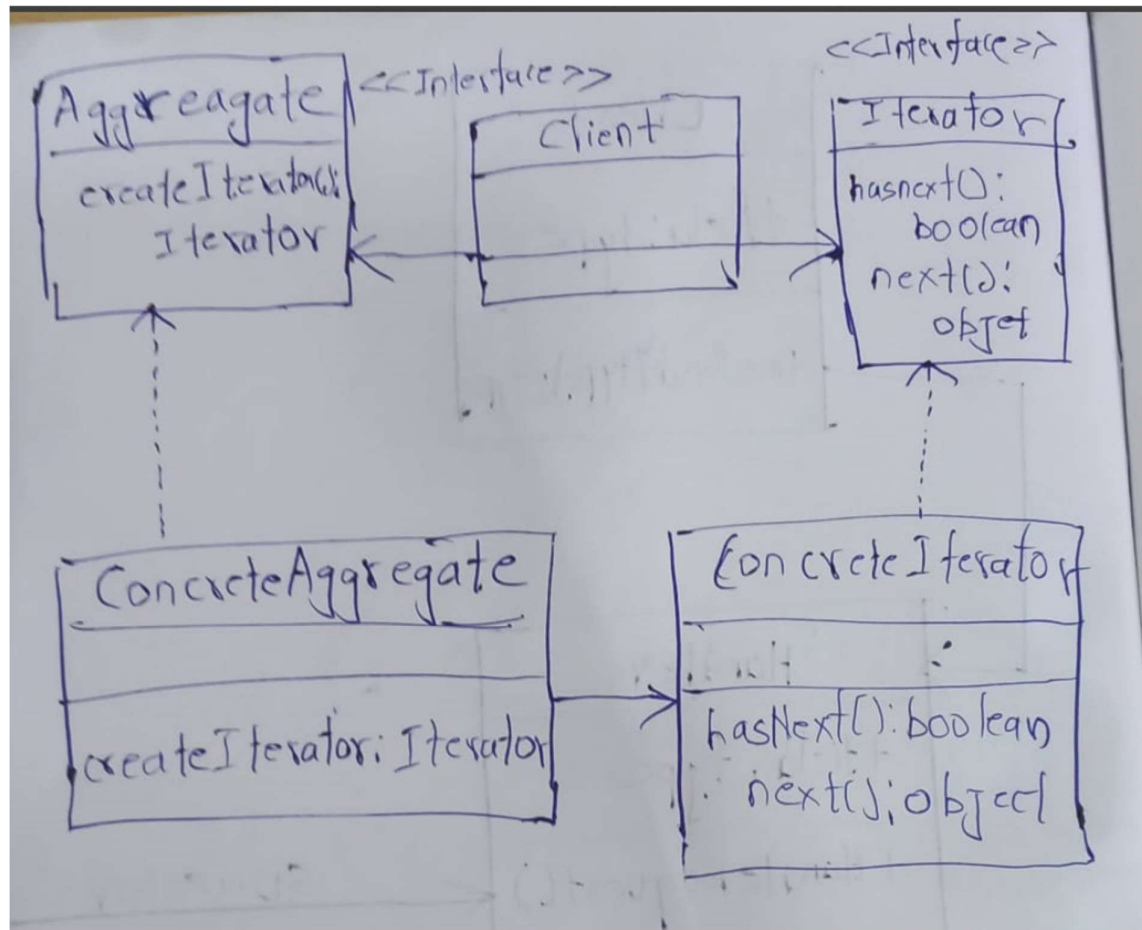 Aggreagate
createIterator():
Iterator
<<Interface>>
Client
<<Interface>>
Iterator
hasnext():
boolean
next():
objet
ConcreteAggregate
createIterator: Iterator
ConcreteIterator
hasNext(): boolean
next(); object